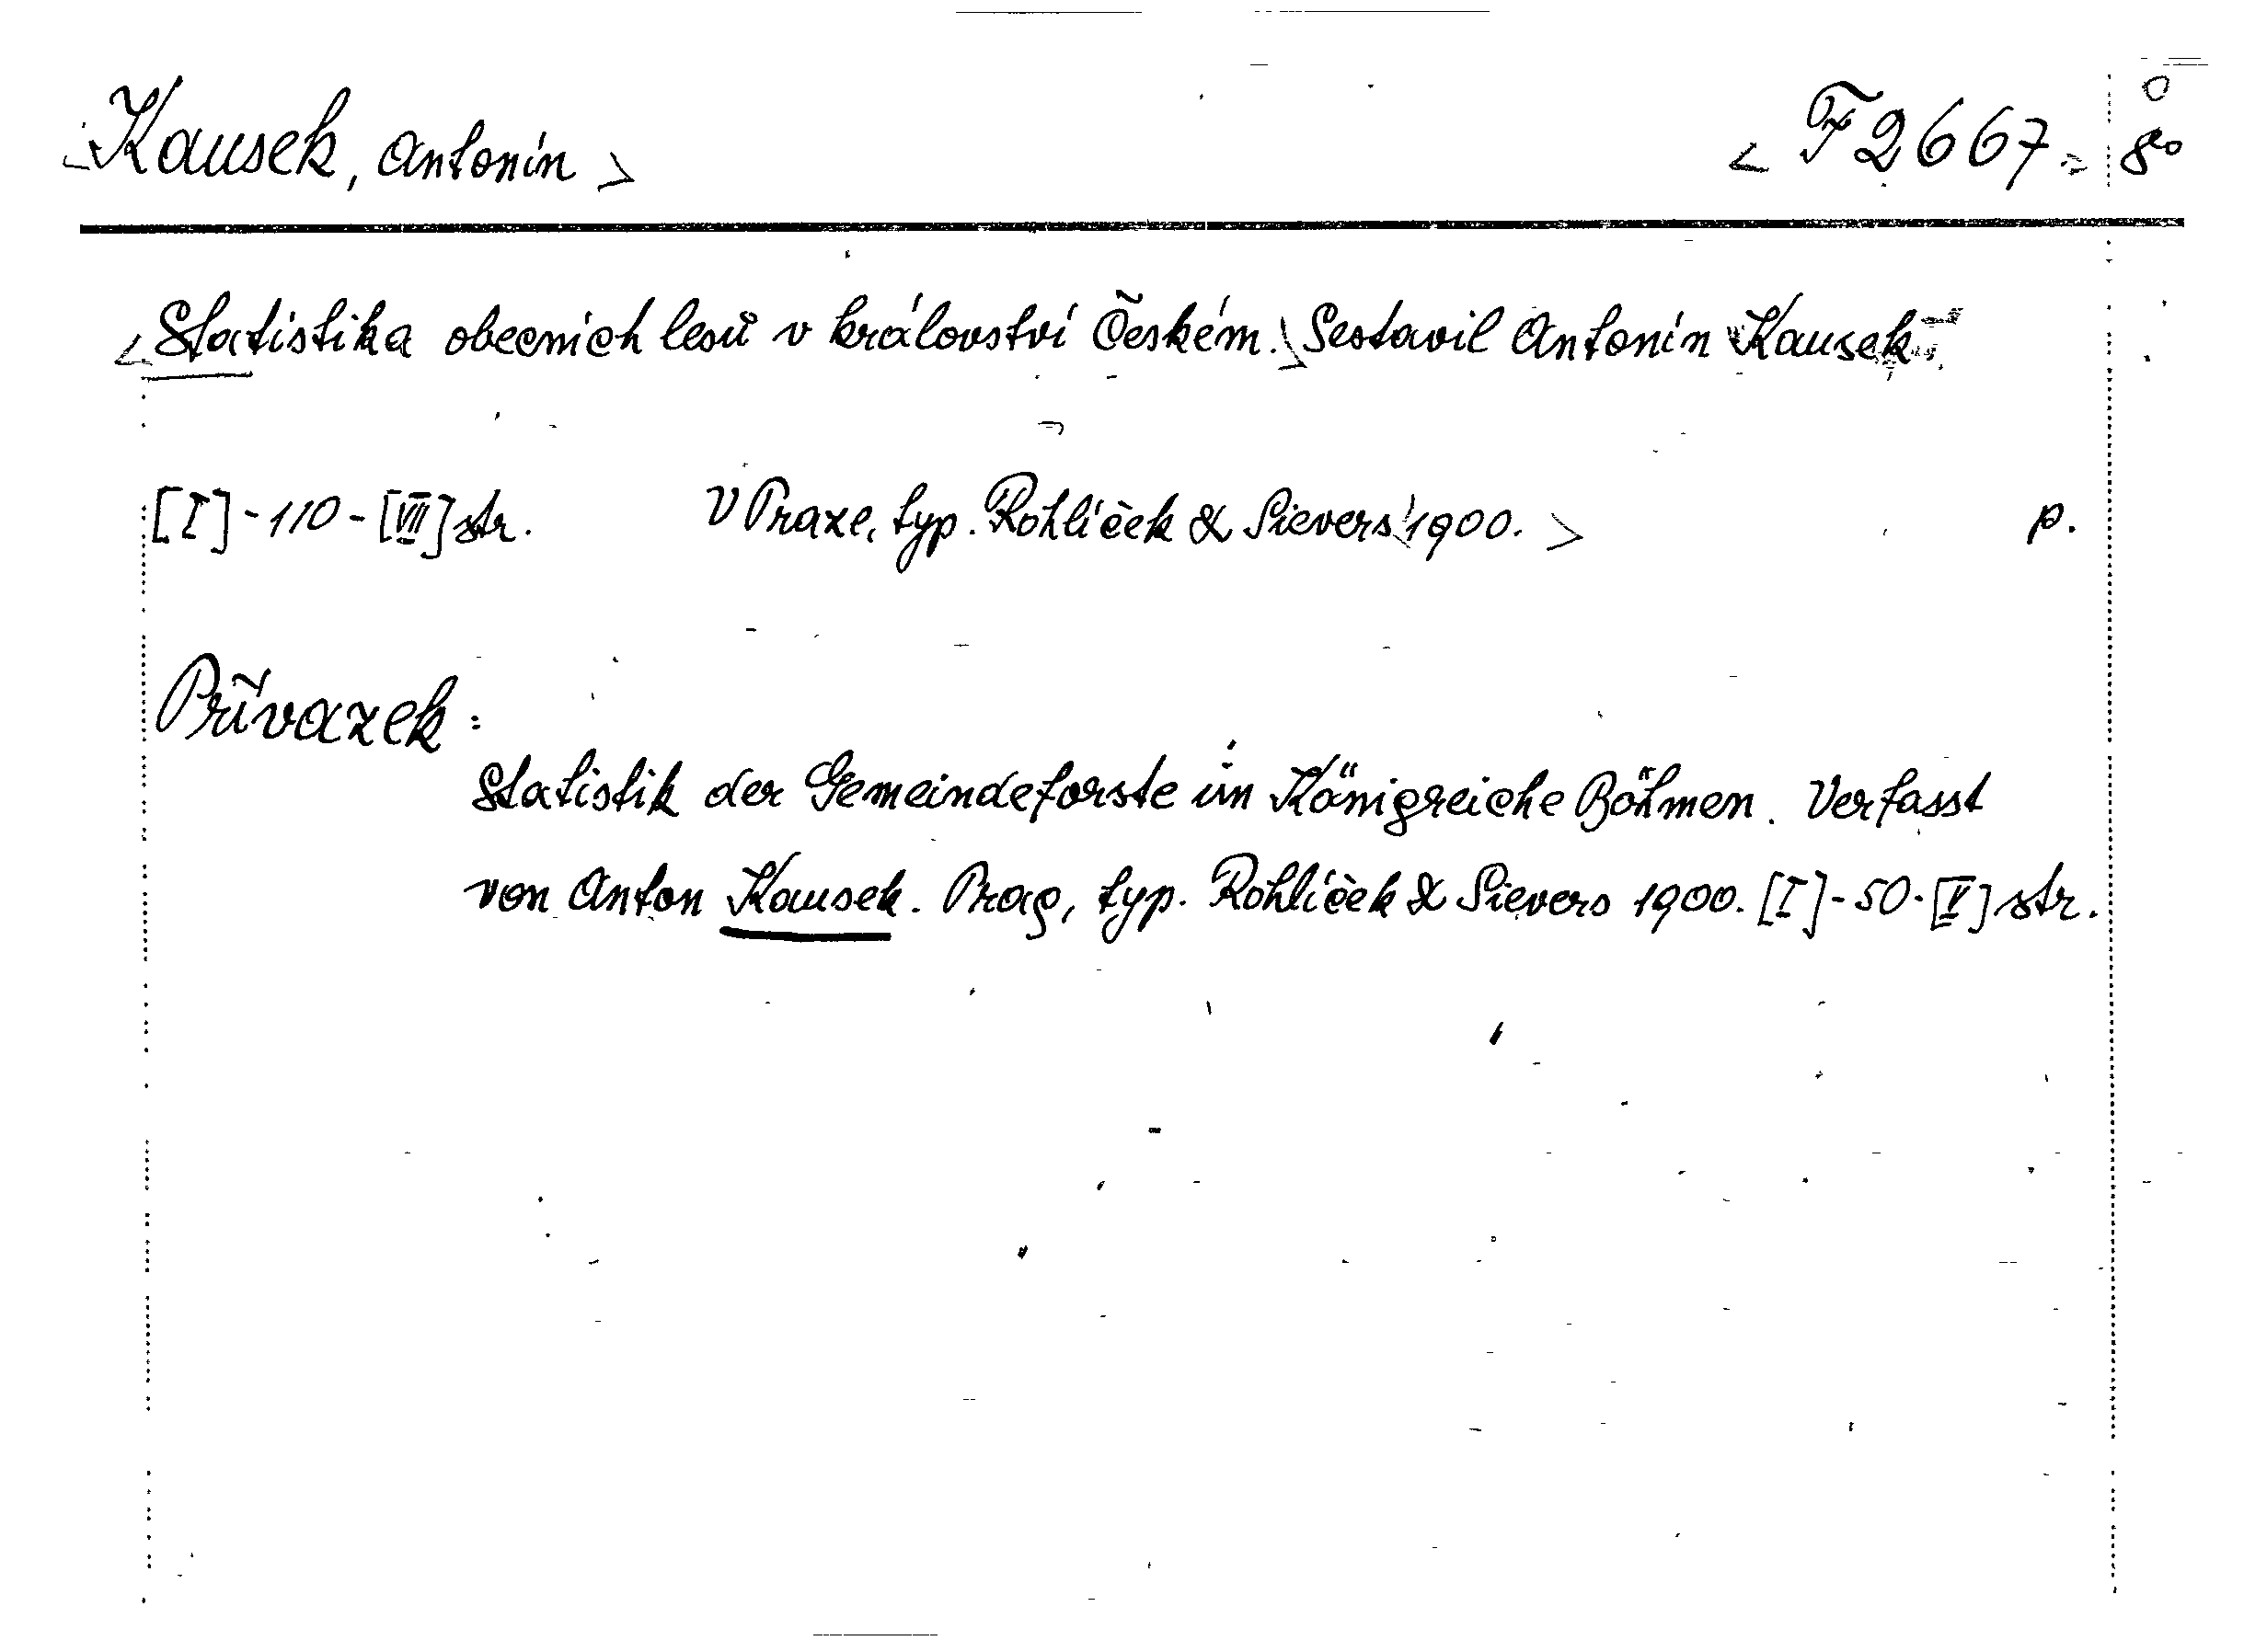 <Kausek, Antonín> <F 2667> 8°
<Statistika obecních lesů v království Českém.> Sestavil Antonín Kausek.
[I]-110-[VII] str. V Praze, typ. Rohlíček & Sievers 1900.> p.
Přívazek:
Statistik der Gemeindeforste im Königreiche Böhmen. Verfasst
von Anton Kausek. Prag, typ. Rohlíček & Sievers 1900. [I]-50-[V] str.